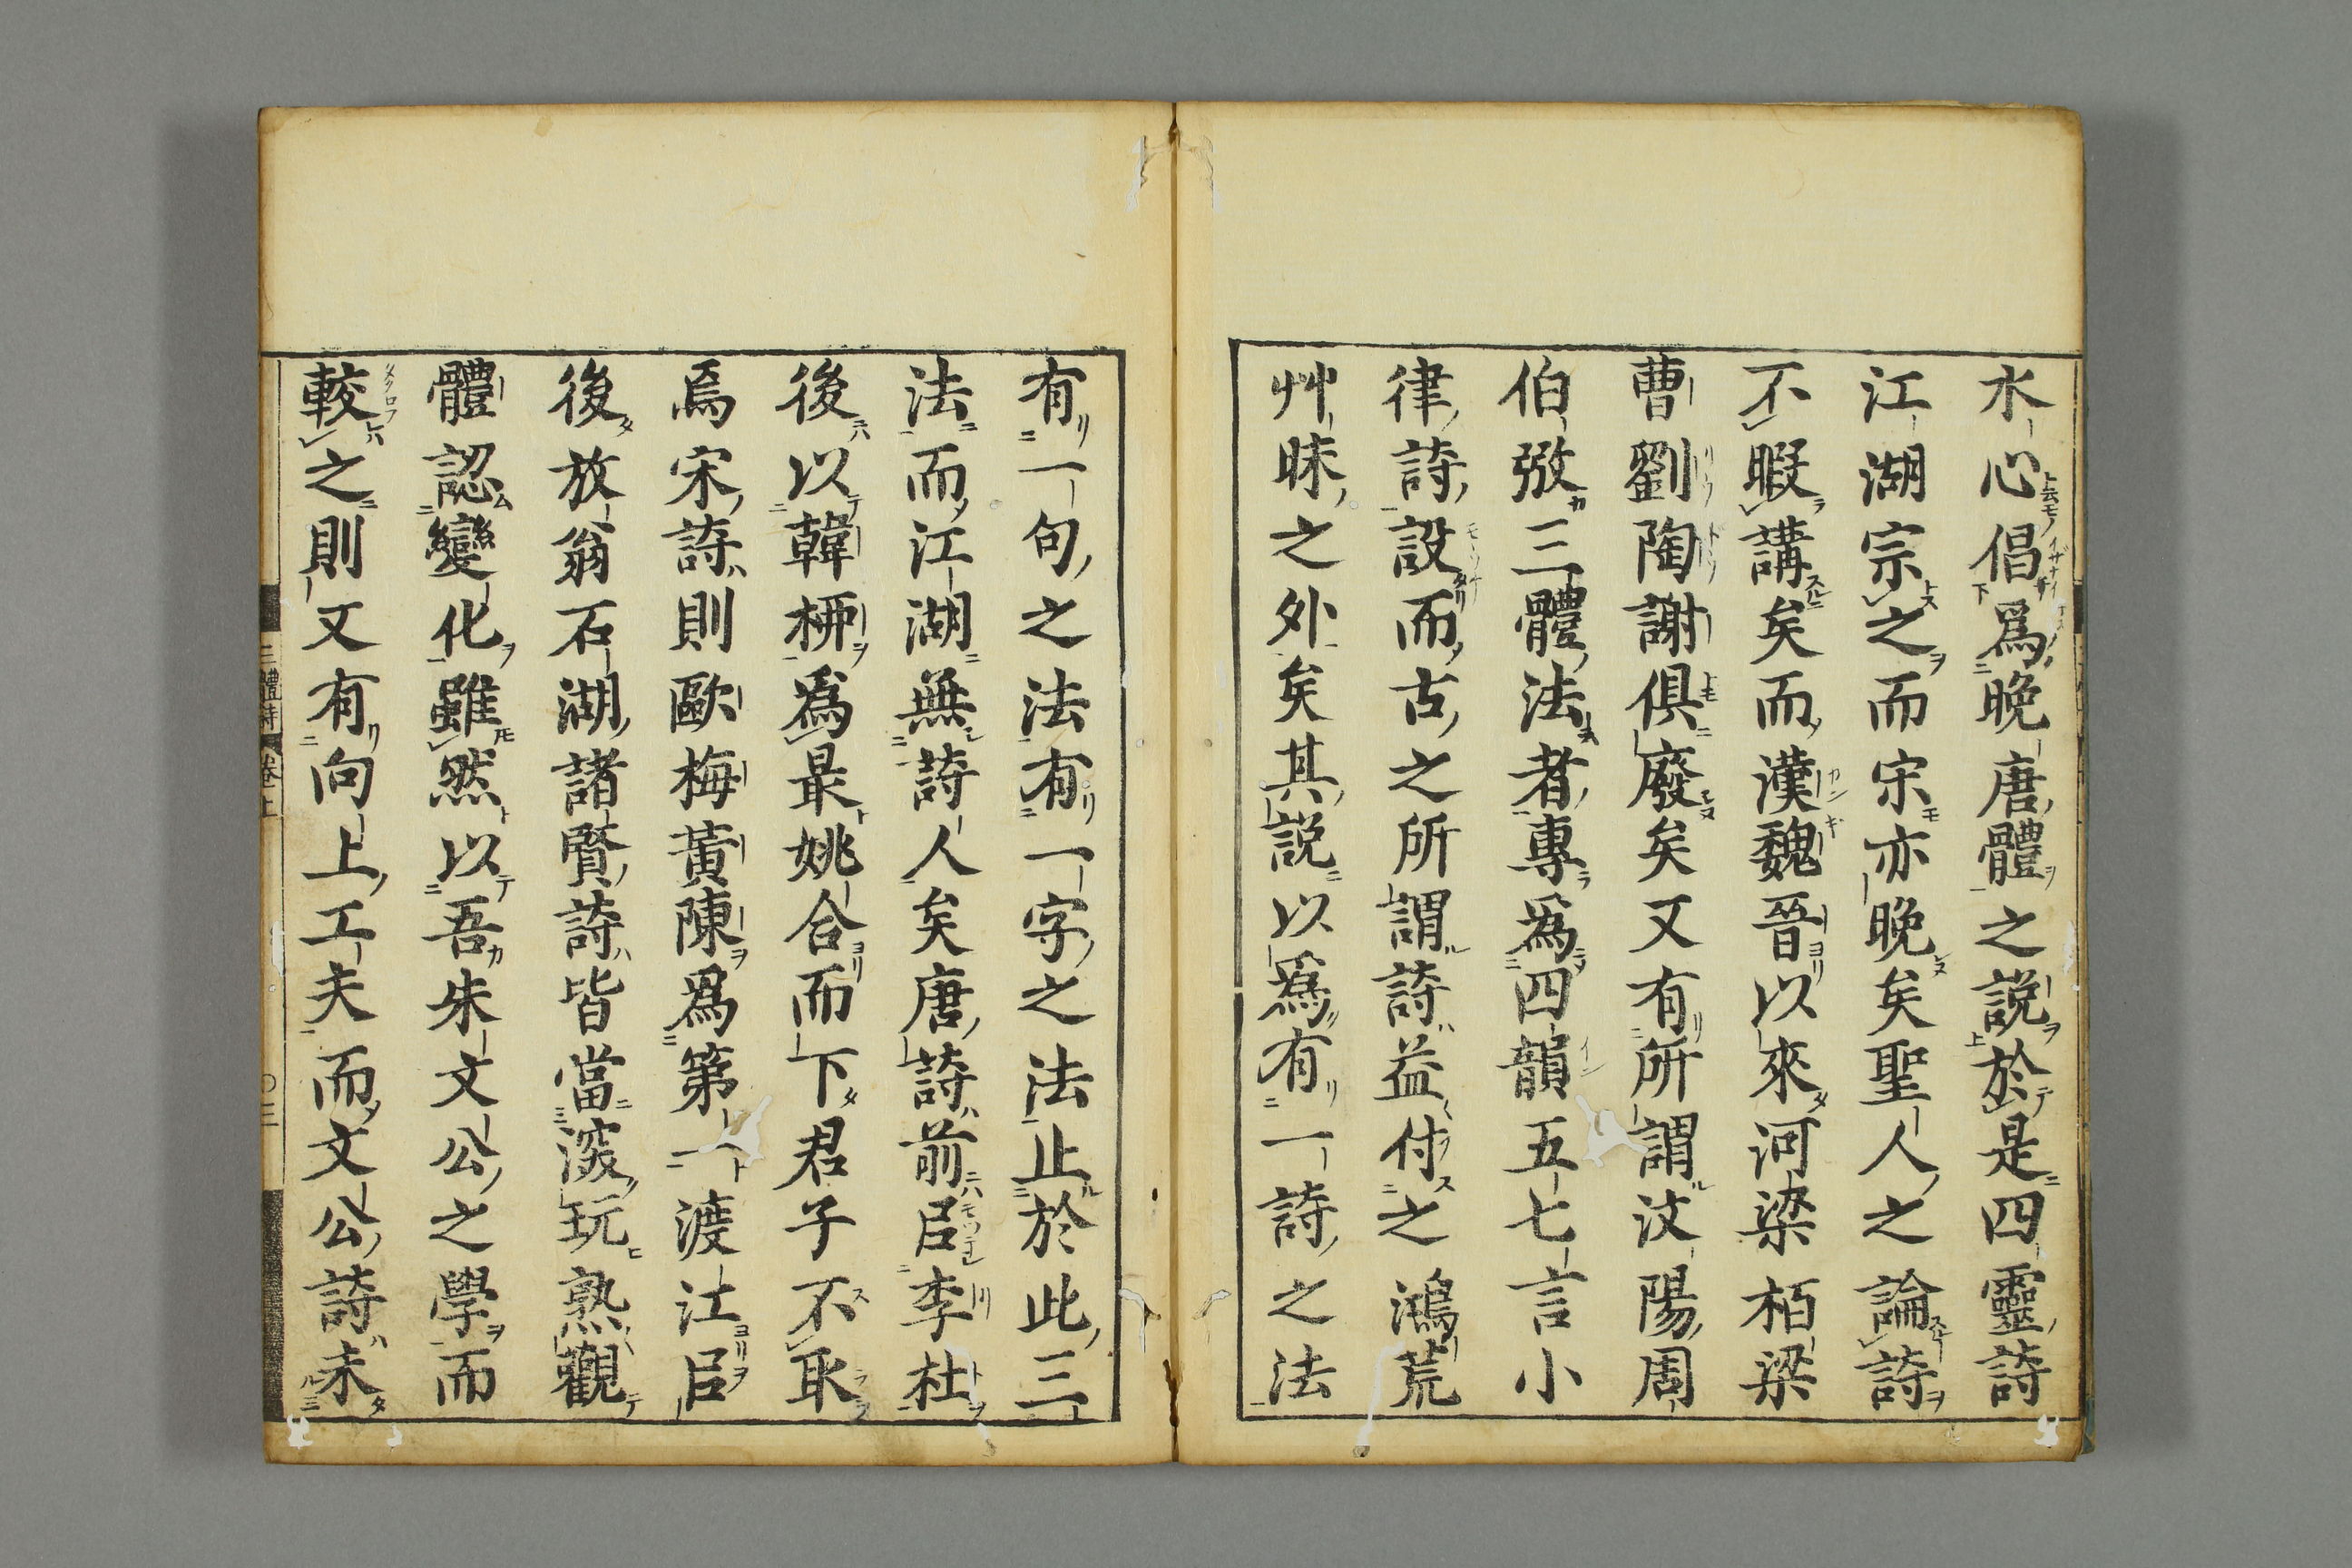 水心倡爲晩唐體之說於是四靈詩
江湖宗之而宋亦晩矣聖人之論詩
不暇講矣而漢魏晉以來河梁栢梁
曹劉陶謝俱廢矣又有所謂汶陽周
伯弜三體法者專爲四韻五七言小
律詩設而古之所謂詩益付之鴻荒
艸昧之外矣其説以爲有一詩之法
有一句之法有一字之法止於此三
法而江湖無詩人矣唐詩前㠯李杜
後以韓桺爲最姚合而下君子不取
焉宋詩則歐梅黃陳爲第一渡江㠯
後放翁石湖諸賢詩皆當深玩熟觀
體認變化雖然以吾朱文公之學而
較之則又有向上工夫而文公詩未
三體詩 卷上 〇三